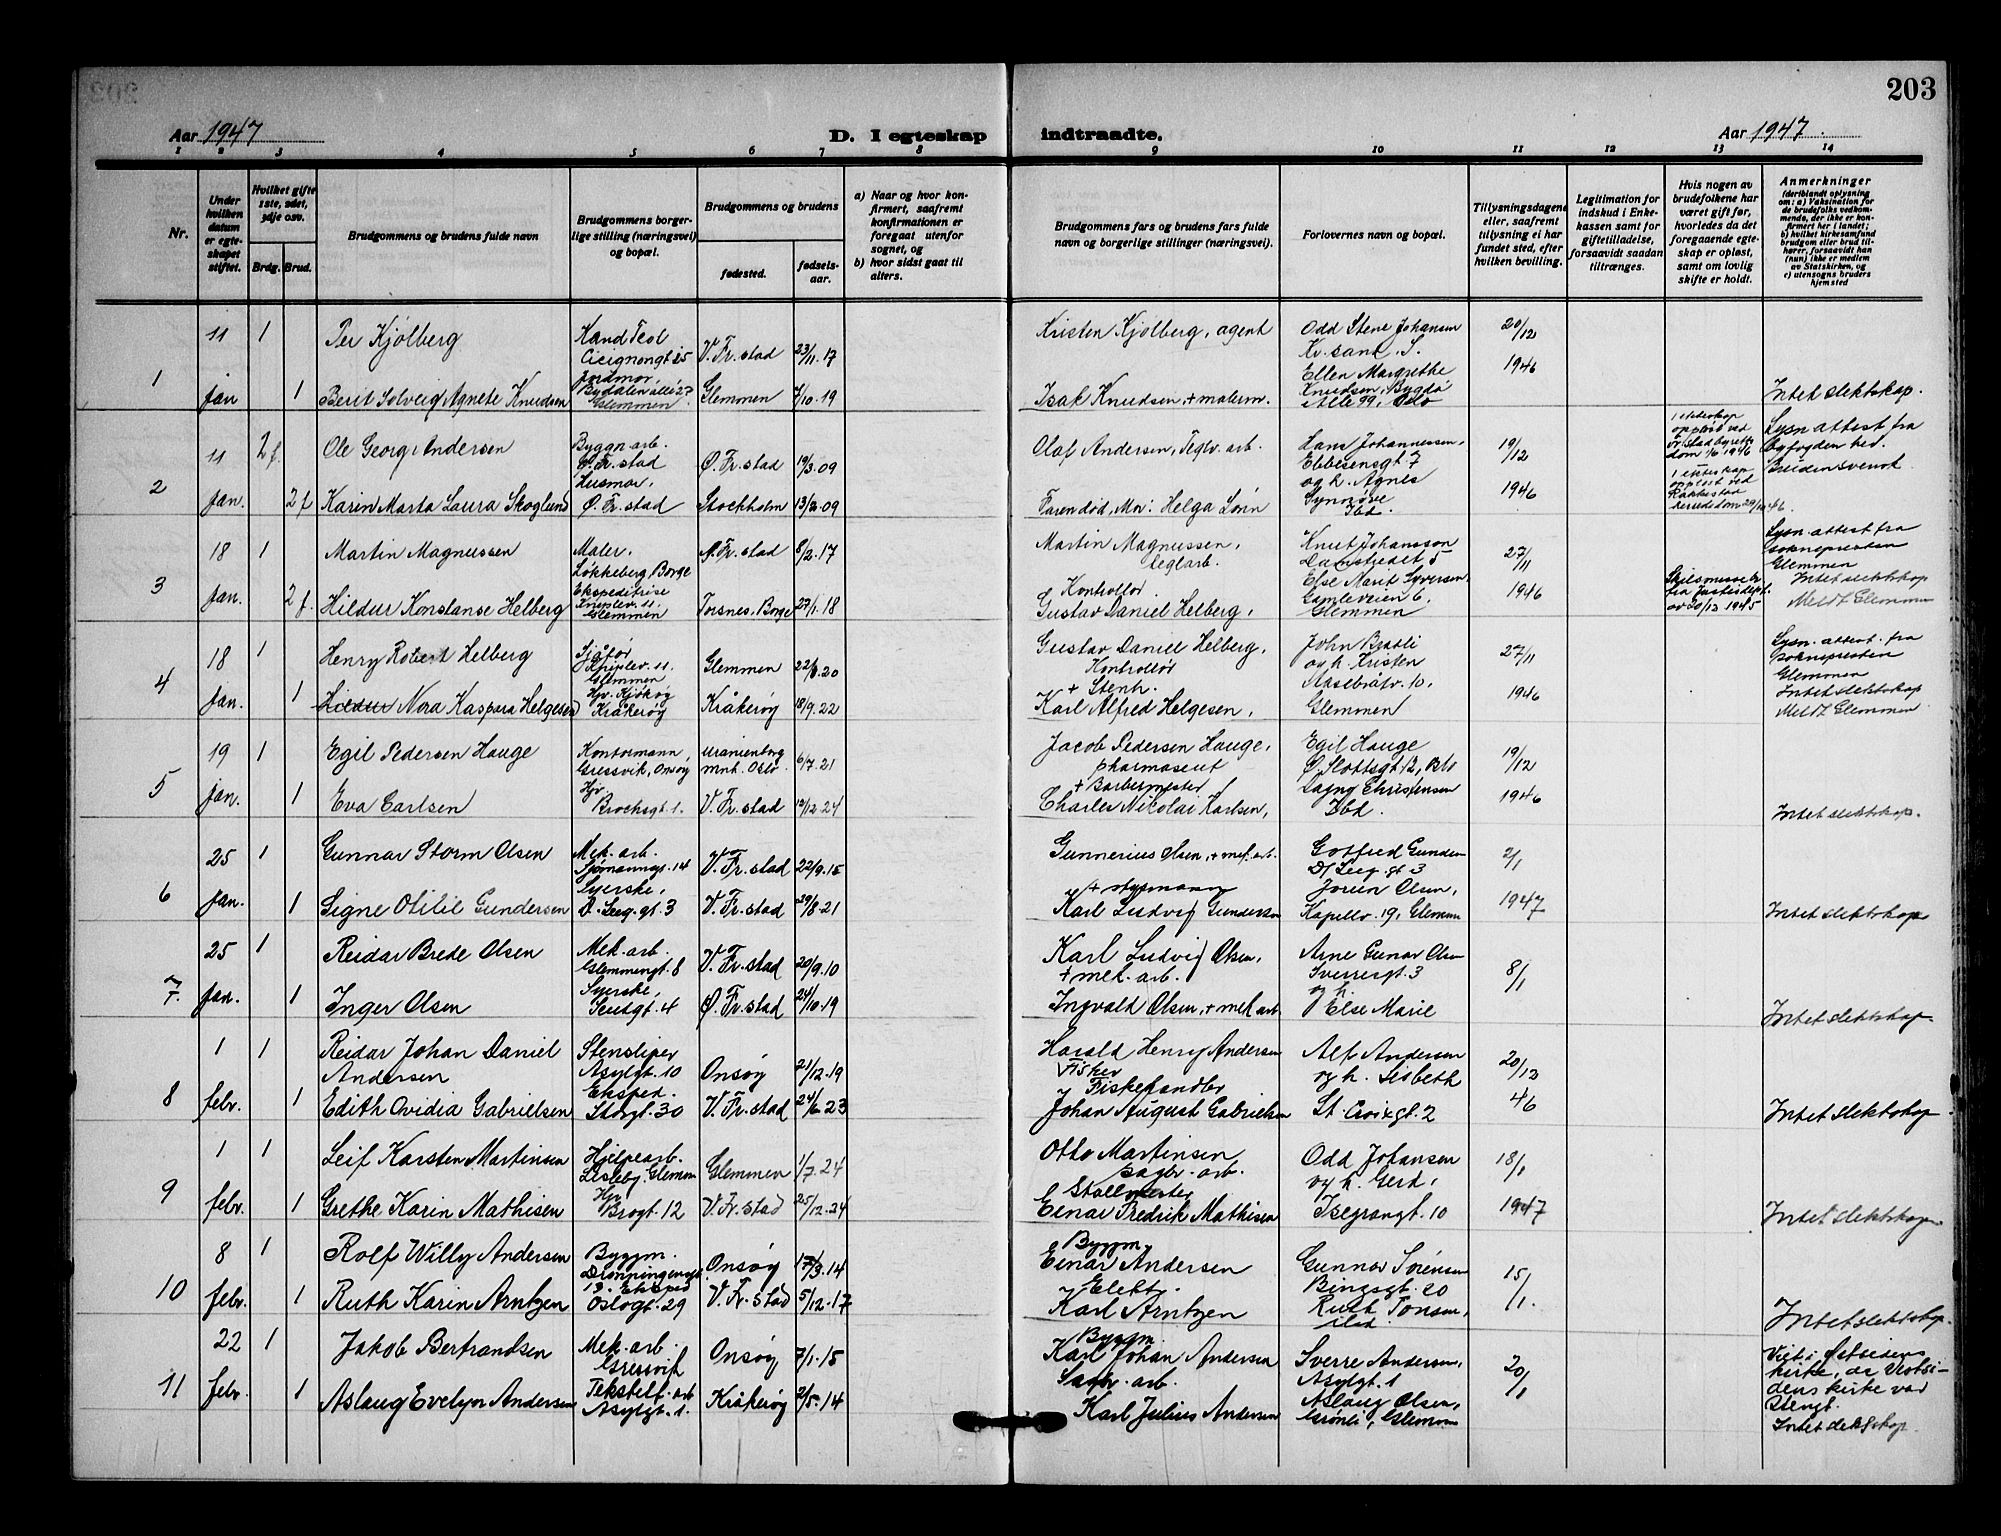 203
Aar 1947
D. I egteskap indtraadte.
Aar 1947.
1 2 3 4 5 6 7 8 9 10 11 12 13 14
Nr.
Under hvilken datum er egteskapet stiftet.
Hvilket gifte 1ste, 2det, 3dje osv.
Brdg. Brud.
Brudgommens og brudens fulde navn
Brudgommens borgerlige stilling (næringsvei) og bopæl.
Brudgommens og brudens
fødested.
fødselsaar.
a) Naar og hvor konfirmert, saafremt konfirmationen er foregaat utenfor sognet, og
b) hvor sidst gaat til alters.
Brudgommens fars og brudens fars fulde navn og borgerlige stillinger (næringsvei).
Forlovernes navn og bopæl.
Tillysningsdagene eller, saafremt tillysning ei har fundet sted, efter hvilken bevilling.
Legitimation for indskud i Enkekassen samt for giftetilladelse, forsaavidt saadan tiltrænges.
Hvis nogen av brudefolkene har været gift før, hvorledes da det foregaaende egteskap er opløst, samt om lovlig skifte er holdt.
Anmerkninger (deriblandt oplysning om: a) Vaksination for de brudefolks vedkommende, der ikke er konfirmert her i landet; b) hvilket kirkesamfund brudgom eller brud tilhører, forsaavidt han (hun) ikke er medlem av Statskirken, og c) utensogns bruders hjemsted
1
11 jan
1
Per Kjölberg
Kand Teol
Cicignongt 25
V. Fr. stad
23/11.17
Kristen Kjölberg, agent
Odd Stene Johansen
Kr. sand. S.
20/12 1946
1
Berit Solveig Agnete Knudsen
Jordmor,
Bydalen allé 27
Glemmen
Glemmen
Isak Knudsen, + malerm.
Ellen Margrethe
Knudsen, Bygdö
Alle 99, Oslo
Intet slektskap.
2
11 Jan.
2 f.
Ole Georg Andersen
Byggn. arb.
Ö. Fr. stad
Ö. Fr. stad
19/3.09
Olaf Andersen, Teglv. arb.
Hans Johannessen,
Ebbesensgt 7
19/12 1946
Lysn attest fra
byfogden her.
2 f
Karin Marta Laura Skoglund
Husmor,
Ö. Fr. stad
Stockholm
Faren död, Mor: Helga Lörin
og h. Agnes
Synnöve
Ibd.
3
18 Jan.
1
Martin Magnussen
Maler,
Løkkeberg, Borge
8/2.17
Martin Magnussen,
teglarb.
Knut Johansson
Damstredet 5
27/11 1946
Lysn. attest fra
sokneprestens
Glemmen
2 f.
Hildur Konstanse Helberg
Ekspeditrise
Knipplev. 11.
Glemmen
Torsnes, Borge
27/1.18
Kontrollör
Gustav Daniel Helberg,
Else Marit Syversen
Gamleveien 6,
Glemmen
Skilsmisse br.
fra Justisdept.
av 20/12 1945
Intet slektskap
Meldt Glemmen
4
18 Jan.
1
Henry Robert Helberg
Sjåför
Knipplev. 11.
Glemmen
Glemmen
Gustav Daniel Helberg,
Kontrollör
John Bratli
og h. Kristen
27/11 1946
Lysn. attest. fra
sokneprestens
Glemmen
1
Hildur Nora Kaspara Helgesen
Hjv. Kjøkøy
Kråkeröy
Kråkeröy
18/9.22
+ Stenh.
Karl Alfred Helgesen,
Aasebråtv. 10,
Glemmen
Intet slektskap
Meldt Glemmen
5
19 jan.
1
Egil Pedersen Hauge
Kontormann,
Gressvik, Onsöy
Uranienborg
mnh. Oslo
6/7.21
Jacob Pedersen Hauge,
pharmaseut
Egil Hauge
19/12 1946
1
Eva Carlsen
Hjv.
Brochsgt 1.
V. Fr. stad
19/12.24
+ Barbermester
Charles Nicolai Karlsen,
Dagny Christensen
Ibd.
Intet slektskap.
6
25 jan.
1
Gunnar Storm Olsen
Mek. arb.
Sjømannsgt. 14
V. Fr. stad
22/9.15
Gunnerius Olsen, + mek. arb.
Gotfred Gunders
D/ Leeg. gt 3
2/1 1947
1
Signe Otilie Gundersen
Syerske,
D. Leeg. gt. 3
V. Fr. stad
29/8.21
+ styrmann
Karl Ludvig Gundersen
Jorun Olsen,
Kapellv. 19, Glemmen
Intet slektskap
7.
25 Jan.
1
Reidar Brede Olsen
Mek. arb.
Glemmengt. 8
V. Fr. stad
20/9.10
Karl Ludvig Olsen,
+ mek. arb.
Arne Gunar Olsen
Sverresgt. 3
8/1
1
Inger Olsen
Syerske,
Ö. Fr. stad
24/10.19
Ingvald Olsen, + mek arb.
og h.
Else Marie
Intet slektskap
8
1 febr.
1
Reidar Johan Daniel
Andersen
Stensliper
Asylgt. 10
Onsöy
21/12.19
Harald Henry Andersen
Fisker
Alf Andersen
og h. Lisbeth
20/12 46
1
Edith Ovidia Gabrielsen
Eksped.
Storgt. 30
V. Fr. stad
24/6.23
Fiskehandler
Johan August Gabrielsen
St. Croixgt. 2
Intet slektskap.
9
1 febr.
1
Leif Karsten Martinsen
Hjelpearb.
Lisleby, Glemmen
Glemmen
1/7.24
Otto Martinsen
sagbr. arb.
Odd Johansen
og h. Gerd,
18/1 1947
1
Grethe Karin Mathisen
Hjv
Brogt. 12
V. Fr. stad
25/12.24
Stallmester
Einar Fredrik Mathisen
Isegrangt. 10
Intet slektskap
10
8 febr.
1
Rolf Willy Andersen
Byggm.
Dronningensgt.
13.
Onsöy
17/3.14
Byggm.
Einar Andersen
Gunnar Sörensen
Bingsgt. 20
15/1.
1
Ruth Karin Arntzen
Eksped
Oslogt. 29
V. Fr. stad
5/12.17
Elekt.
Karl Arntzen
Ruth Tonsen,
ibd.
Intet slektskap.
11
22 febr.
1
Jakob Bertrandsen
Mek. arb.
Gressvik
Onsöy
7/1.15
Byggm.
Karl Johan Andersen
Sverre Andersen,
Asylgt. 1
20/1
Viet i Østsidens
kirke, da Vestsi-
dens kirke var
stengt.
1
Aslaug Evelyn Andersen
Tekstilf. arb
Asylgt. 1.
Kråkeröy
2/5.14
Sagbr. arb.
Karl Julius Andersen
Aslaug Olsen,
Grönli, Glemmen
Intet slektskap.